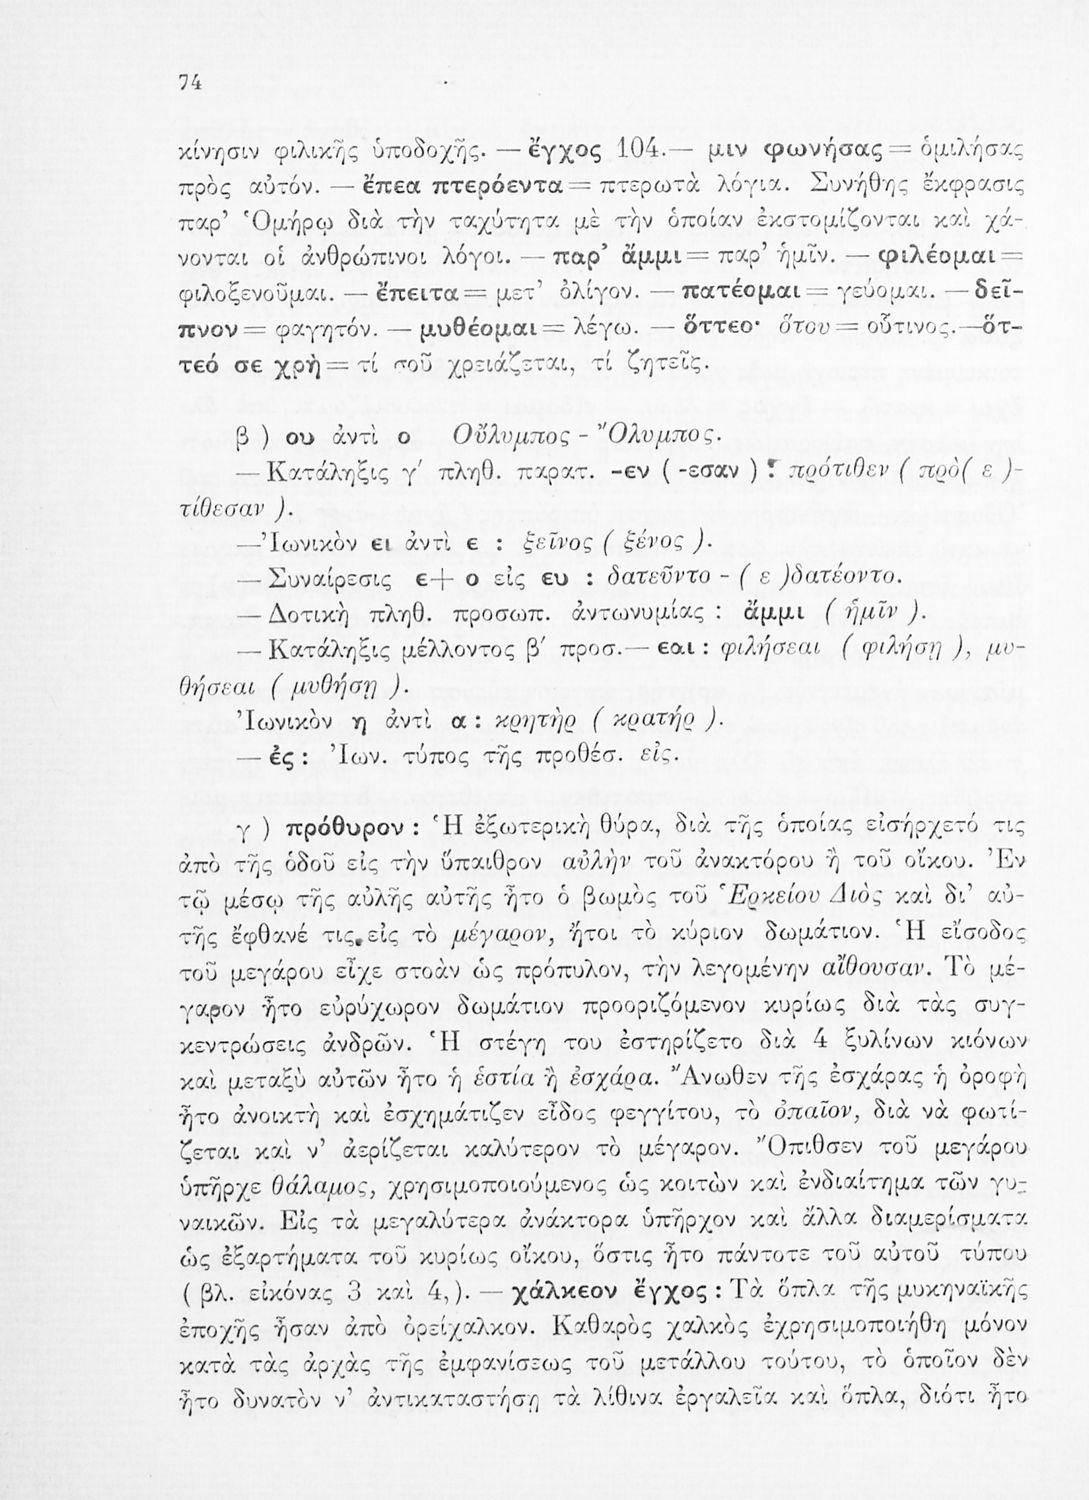 74
κίνησιν φιλικῆς ὑποδοχῆς. — ἔγχος 104.— μιν φωνήσας = ὁμιλήσας
πρὸς αὐτόν. — ἔπεα πτερόεντα = πτερωτὰ λόγια. Συνήθης ἔκφρασις
παρ’ Ὁμήρῳ διὰ τὴν ταχύτητα μὲ τὴν ὁποίαν ἐκστομίζονται καὶ χά-
νονται οἱ ἀνθρώπινοι λόγοι. — παρ’ ἄμμι = παρ’ ἡμῖν. — φιλέομαι =
φιλοξενοῦμαι. — ἔπειτα = μετ’ ὀλίγον. — πατέομαι = γεύομαι. — δεῖ-
πνον = φαγητόν. — μυθέομαι = λέγω. — ὅττεο· ὅτου = οὗτινος.—ὅτ-
τεό σε χρὴ = τί σοῦ χρειάζεται, τί ζητεῖς.
β ) ου ἀντὶ ο Οὔλυμπος - Ὄλυμπος.
— Κατάληξις γ′ πληθ. παρατ. -εν ( -εσαν ) : πρότιθεν ( πρὸ( ε )-
τίθεσαν ).
—Ἰωνικὸν ει ἀντὶ ε : ξεῖνος ( ξένος ).
— Συναίρεσις ε+ ο εἰς ευ : δατεῦντο - ( ε )δατέοντο.
— Δοτικὴ πληθ. προσωπ. ἀντωνυμίας : ἄμμι ( ἡμῖν ).
— Κατάληξις μέλλοντος β′ προσ.— εαι : φιλήσεαι ( φιλήσῃ ), μυ-
θήσεαι ( μυθήσῃ ).
Ἰωνικὸν η ἀντὶ α : κρητὴρ ( κρατήρ ).
— ἐς : Ἰων. τύπος τῆς προθέσ. εἰς.
γ ) πρόθυρον : Ἡ ἐξωτερικὴ θύρα, διὰ τῆς ὁποίας εἰσήρχετό τις
ἀπὸ τῆς ὁδοῦ εἰς τὴν ὕπαιθρον αὐλὴν τοῦ ἀνακτόρου ἢ τοῦ οἴκου. Ἐν
τῷ μέσῳ τῆς αὐλῆς αὐτῆς ἦτο ὁ βωμὸς τοῦ Ἑρκείου Διὸς καὶ δι’ αὐ-
τῆς ἔφθανέ τις εἰς τὸ μέγαρον, ἤτοι τὸ κύριον δωμάτιον. Ἡ εἴσοδος
τοῦ μεγάρου εἶχε στοὰν ὡς πρόπυλον, τὴν λεγομένην αἴθουσαν. Τὸ μέ-
γαρον ἦτο εὐρύχωρον δωμάτιον προοριζόμενον κυρίως διὰ τὰς συγ-
κεντρώσεις ἀνδρῶν. Ἡ στέγη του ἐστηρίζετο διὰ 4 ξυλίνων κιόνων
καὶ μεταξὺ αὐτῶν ἦτο ἡ ἑστία ἢ ἐσχάρα. Ἄνωθεν τῆς ἐσχάρας ἡ ὀροφὴ
ἦτο ἀνοικτὴ καὶ ἐσχημάτιζεν εἶδος φεγγίτου, τὸ ὀπαῖον, διὰ νὰ φωτί-
ζεται καὶ ν’ ἀερίζεται καλύτερον τὸ μέγαρον. Ὄπιθσεν τοῦ μεγάρου
ὑπῆρχε θάλαμος, χρησιμοποιούμενος ὡς κοιτὼν καὶ ἐνδιαίτημα τῶν γυ-
ναικῶν. Εἰς τὰ μεγαλύτερα ἀνάκτορα ὑπῆρχον καὶ ἄλλα διαμερίσματα
ὡς ἐξαρτήματα τοῦ κυρίως οἴκου, ὅστις ἦτο πάντοτε τοῦ αὐτοῦ τύπου
( βλ. εἰκόνας 3 καὶ 4,). — χάλκεον ἔγχος : Τὰ ὅπλα τῆς μυκηναϊκῆς
ἐποχῆς ἦσαν ἀπὸ ὀρείχαλκον. Καθαρὸς χαλκὸς ἐχρησιμοποιήθη μόνον
κατὰ τὰς ἀρχὰς τῆς ἐμφανίσεως τοῦ μετάλλου τούτου, τὸ ὁποῖον δὲν
ἦτο δυνατὸν ν’ ἀντικαταστήσῃ τὰ λίθινα ἐργαλεῖα καὶ ὅπλα, διότι ἦτο